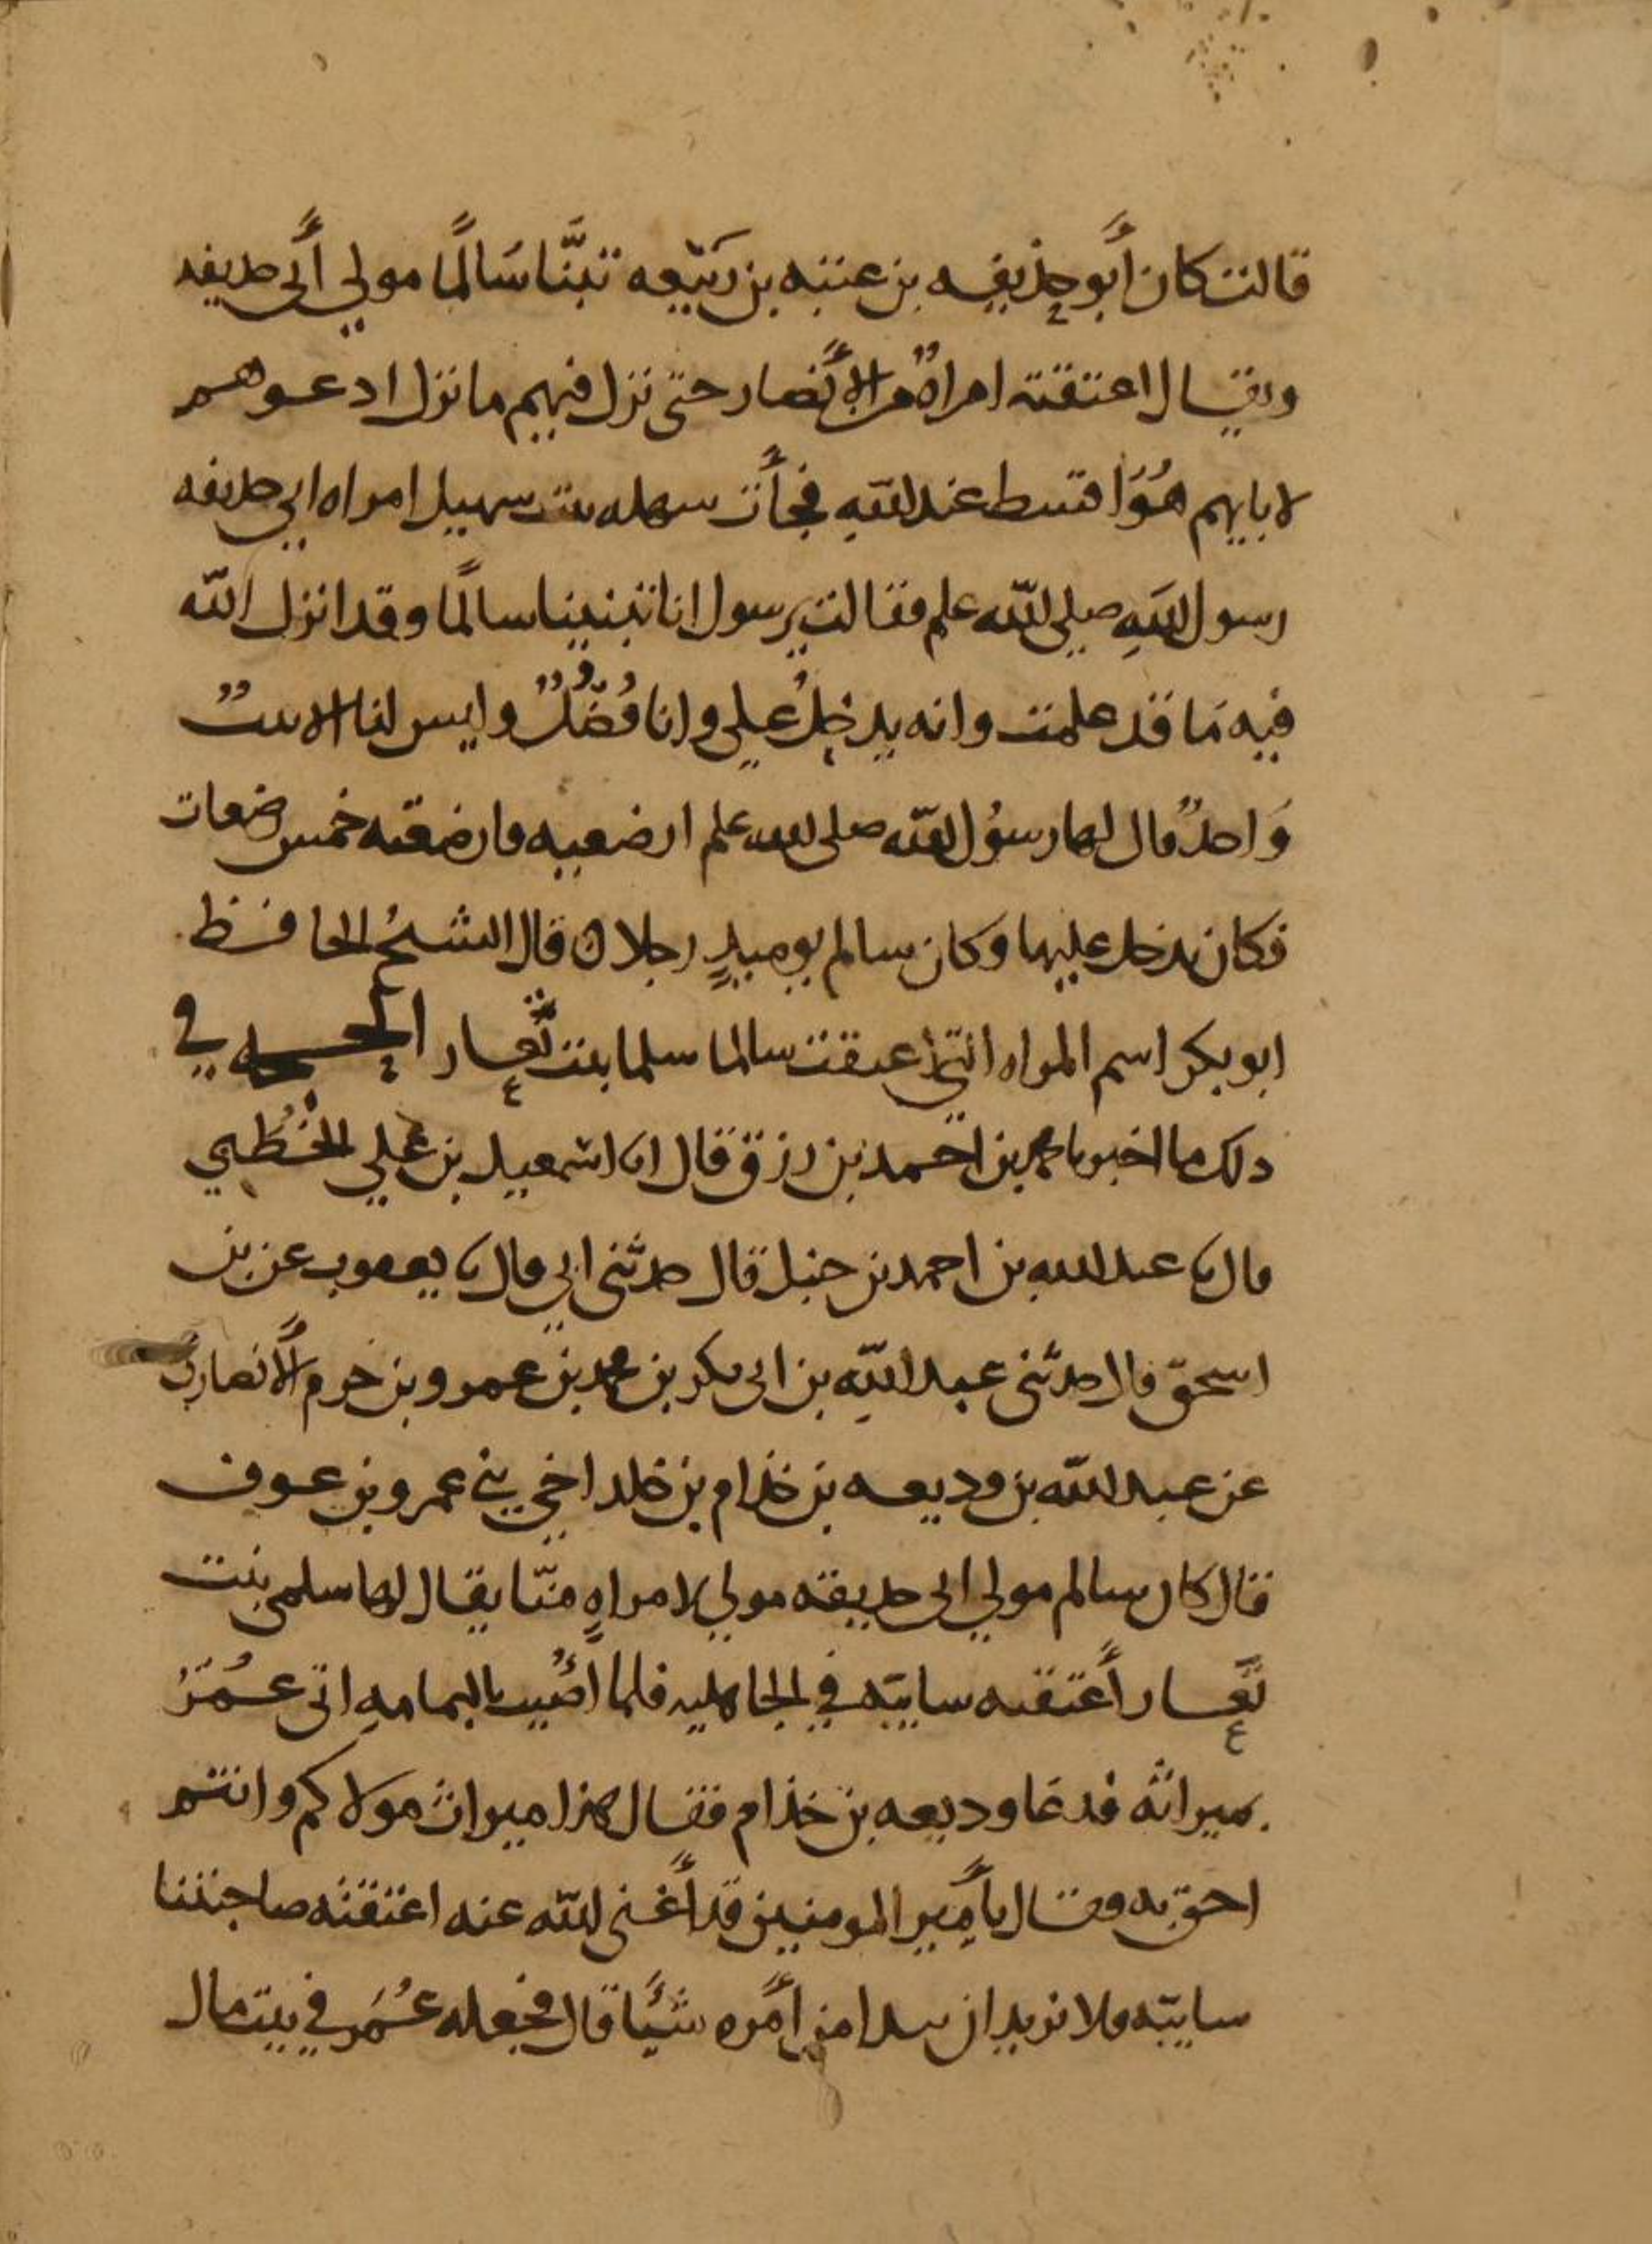 قالت كان أبو حذيفه بن عتبه بن ربيعه تبنَّا سَالمًا مولي أبي حذيفه
ويقال اعتقته امراةٌ من الأنصار حتى نزل فيهم ما نزل ادعوهم
لابايهم هُوَ اقسط عند اللهِ فجأت سهله بنت سهيل امراه ابي حذيفه
رسول اللهِ صلى الله علم فقالت يرسول انا تبنينا سالمًا وقد انزل الله
فيه مَا قد علمت وانه يدخلُ علي وانا فُضُلٌ وليس لنا الا بيتٌ
وَاحدٌ قال لها رسوُل الله صلى الله علم ارضعيه فارضعته خمس رضعات
فكان يدخل عليها وكان سالم يوميذٍ رجلا ه قال الشيخُ الحافظ
ابو بكر اسم المراه التي اعتقت سالما سلما بنت تَعار الحجه في
ذلك ما اخبرنا محمد بن احمد بن رزق قال انا اسمعيل بن علي الخُطَبي
قال نا عبد الله بن احمد بن حنبل قال حدثني ابي قال نا يعقوب عن بن
اسحق قال حدثني عبد اللهِ بن ابي بكر بن محمد بن عمرو بن حزم الأنصاري
عن عبد الله بن وديعه بن خذام بن خلد اخي بني عمرو بن عوف
قال كان سالم مولي ابي حذيفه مولي لامراهٍ منّا يقال لها سلمى بنت
تَعار أعتقته سايبّه في الجاهليه فلما أُصُيب باليمامهِ اتى عُمَرُ
بميراثه فدعَا وديعه بن خذام فقال هذا ميراث مولاكم وانتم
احق به فقال يا أمير المومنين قد أغنى الله عنه اعتقته صاحبتنا
سايبّه فلا نريد ان نبدا من أمره شيًا قال فجعله عُمَر في بيت مال